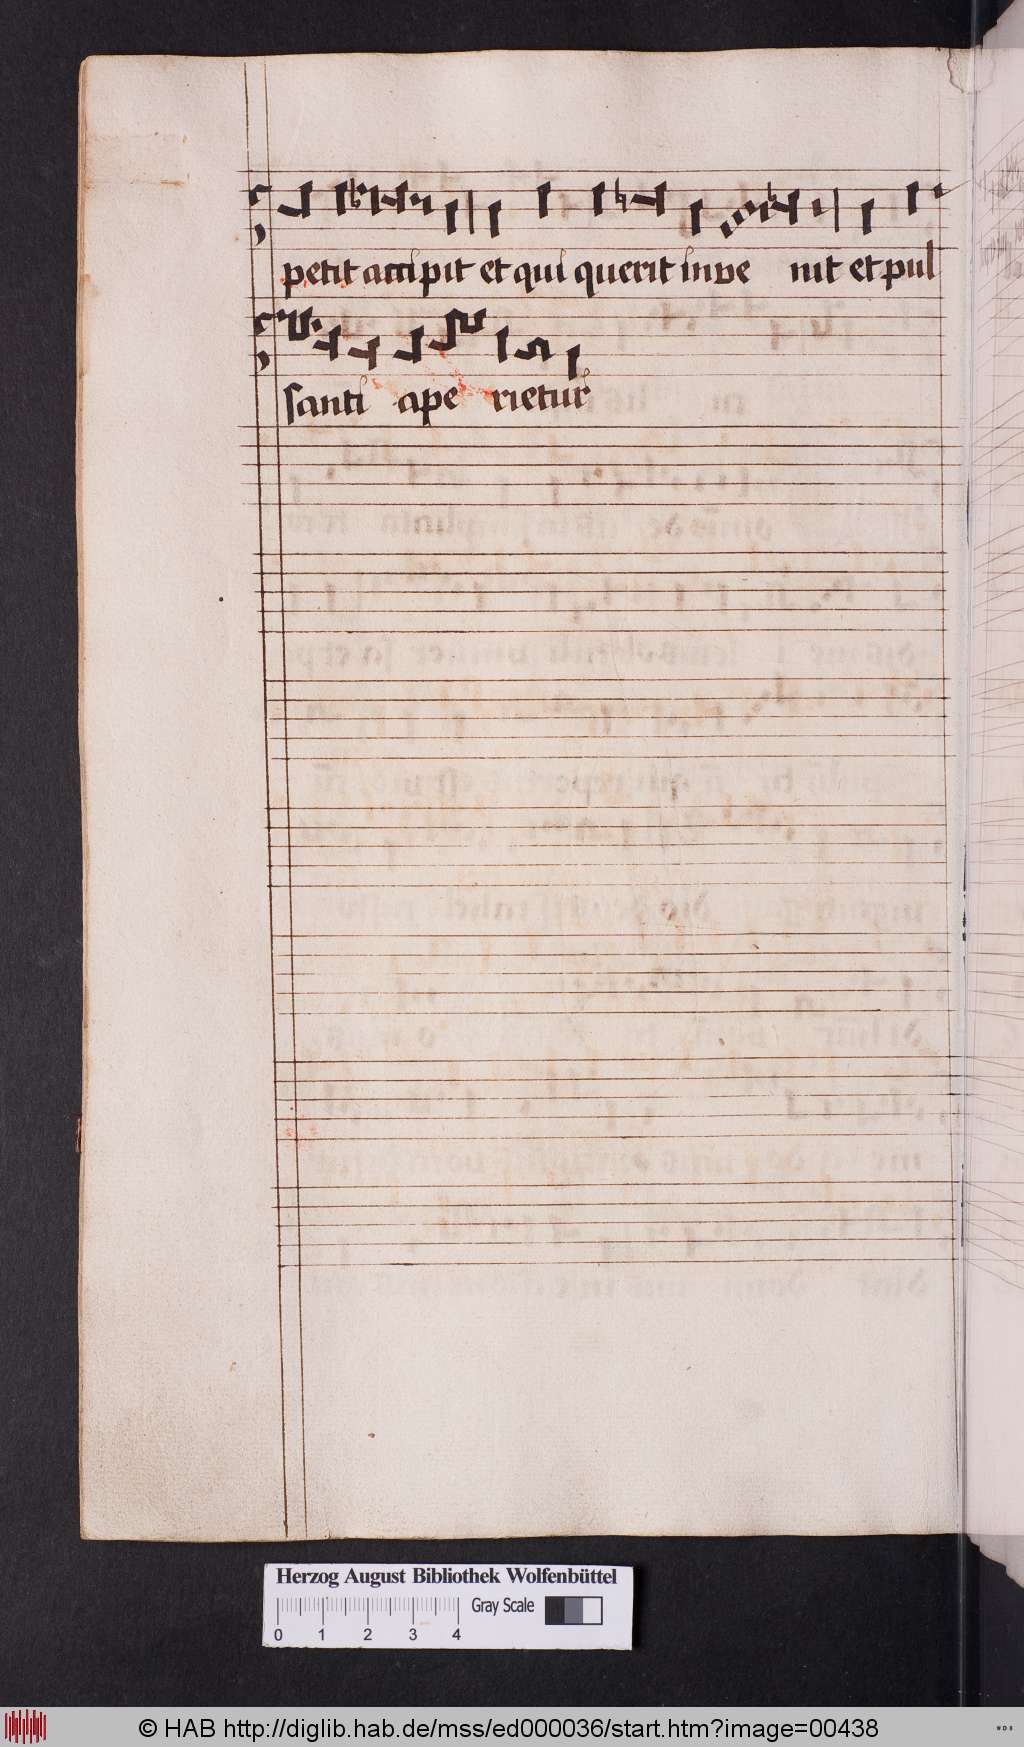 petit accipit et qui querit inve nit et pul
santi ape rietur
Herzog August Bibliothek Wolfenbüttel
Gray Scale
0 1 2 3 4
© HAB http://diglib.hab.de/mss/ed000036/start.htm?image=00438